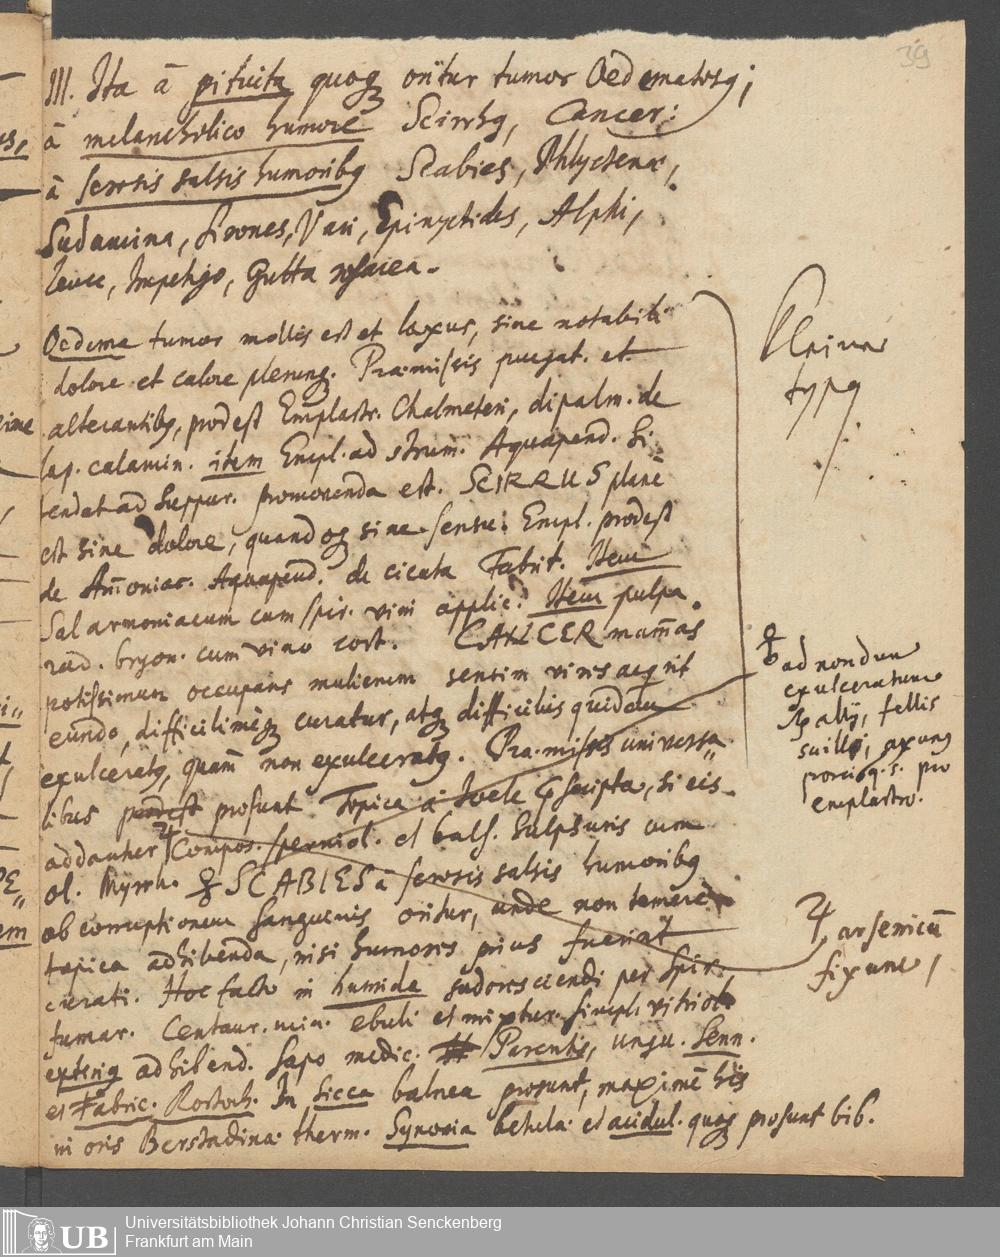 39
III. Ita à pituita quoq; oritur tumor Oedematosq;
à melancholico humore Scirrhq, Cancer;
à serosis salsis humoribq Scabies, Phlyctenæ,
Sudamina, Sirones, Vari, Epinyctides, Alphi,
Leuce, Impetigo, Gutta rosacea.
Oedema tumor mollis est et laxus, sine notabili
dolore et calore plerunq. Præmissis purgat. et
alterantibq, prodest Emplastr. Chalmetei, dipalm. de
lap. calamin. item Empl. ad strum. Aquapend. Si
tendat ad Suppur. promovenda est. SCIRRUS planè
est sine dolore, quandoq sine sensu. Empl. prodest
de Ammoniac. Aquapend. de cicuta Fabrit. Item
Sal armoniacum cum spir. vini applic. Item pulpa
rad. bryon. cum vino coct. CANCER mammas
potissimum occupans mulierum sentim vires acqrit
eundo, difficilimeq curatur, atq difficilius quidam
exulceratq, quam non exulceratq. Præmissis universa-
libus prosunt Topica à Joele pscripta, si eis
addantur ♃ Compos. sperniol. et bals. Sulphuris cum
ol. Myrrh. SCABIES à serosis salsis humoribq
ob corruptionem sanguinis oritur, unde non temerè
topica adhibenda, nisi humores prius fuerint
curati. Hoc facto in humida sudores ciendi per Spir.
fumar. Centaur. min. ebuli et mixtur. simpl. vitriol.
externq adhibend. Sapo medic. Parentis, ungu. Senn.
et Fabric. Rostoch. In Sicca balnea prosunt, maximè his
in oris Berstadina therm. Synovia betula et acidul. quoq prosunt bib.
typq
ad nondum
exulceratum
Rx alŷ, fellis
suilli, axung
porci q. s. pro
emplastro.
♃ arsenicũ
fixum,
UB
Universitätsbibliothek Johann Christian Senckenberg
Frankfurt am Main